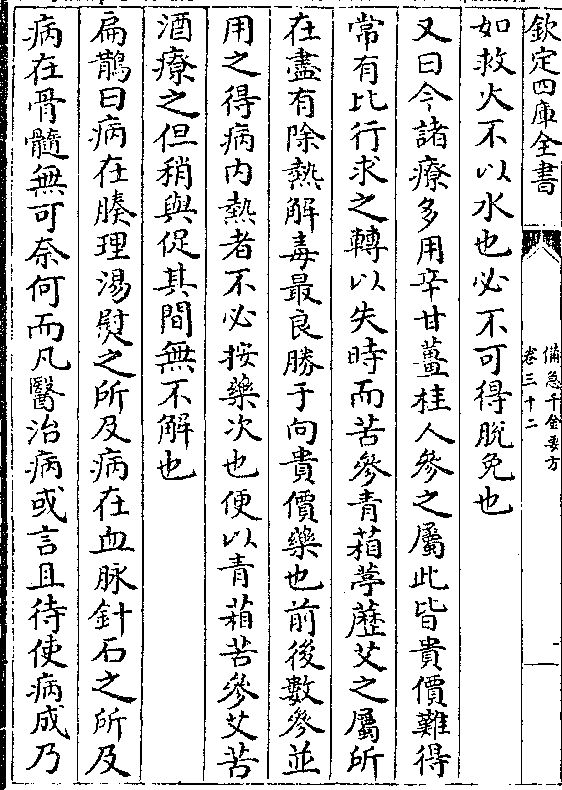 欽定四庫全書
備急千金要方
卷三十二
如救火不以水也必不可得脫免也
又曰今諸療多用辛甘薑桂人參之屬此皆貴價難得
常有比行求之轉以失時而苦參青葙葶藶艾之屬所
在盡有除熱解毒最良勝于向貴價藥也前後數參並
用之得病内熱者不必按藥次也便以青葙苦參艾苦
酒療之但稍與促其間無不解也
扁鵲曰病在腠理湯熨之所及病在血脉針石之所及
病在骨髓無可奈何而凡醫治病或言且待使病成乃